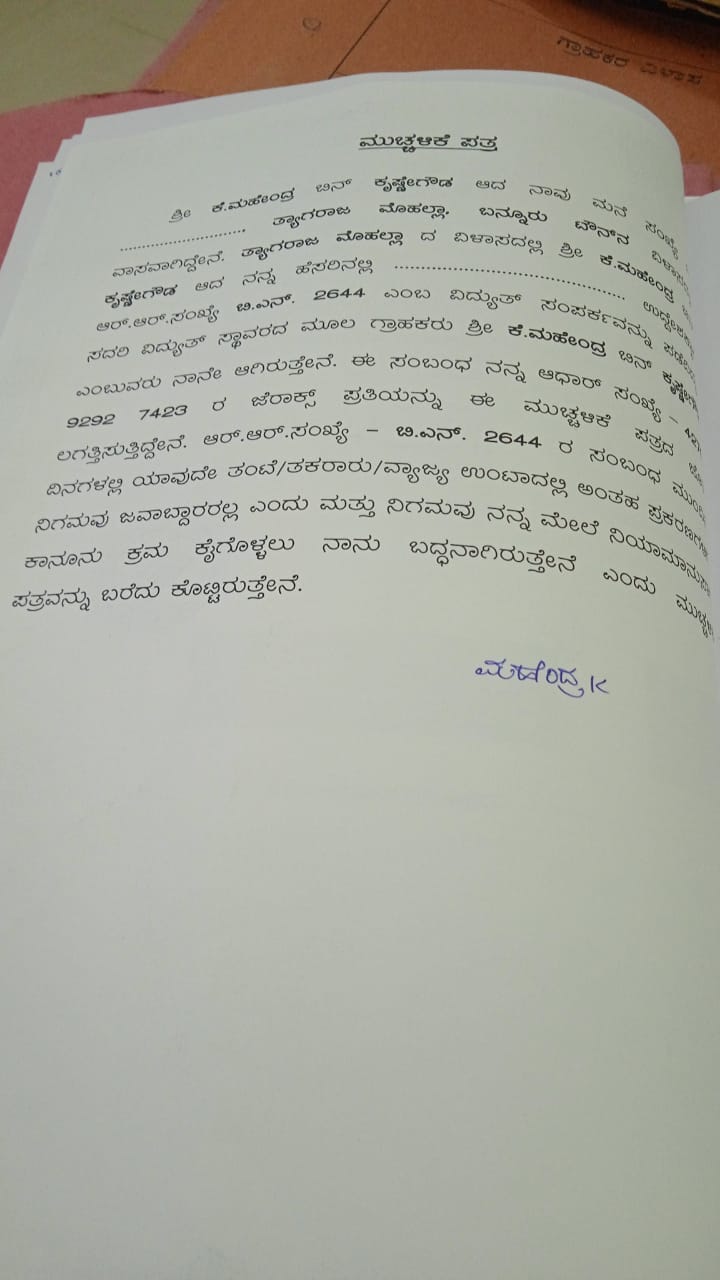 ಗ್ರಾಹಕರ ವಿಳಾಸ
ಮುಚ್ಚಳಿಕೆ ಪತ್ರ
ಶ್ರೀ ಕೆ.ಮಹೇಂದ್ರ ಬಿನ್ ಕೃಷ್ಣೇಗೌಡ ಆದ ನಾವು ಮನೆ ಸಂಖ್ಯೆ
........................... ತ್ಯಾಗರಾಜ ಮೊಹಲ್ಲಾ, ಬನ್ನೂರು ಟೌನ್‌ನ
ವಾಸವಾಗಿದ್ದೇನೆ. ತ್ಯಾಗರಾಜ ಮೊಹಲ್ಲಾ ದ ವಿಳಾಸದಲ್ಲಿ ಶ್ರೀ ಕೆ.ಮಹೇಂದ್ರ
ಕೃಷ್ಣೇಗೌಡ ಆದ ನನ್ನ ಹೆಸರಿನಲ್ಲಿ ..................................................
ಆರ್.ಆರ್.ಸಂಖ್ಯೆ ಬಿ.ಎನ್. 2644 ಎಂಬ ವಿದ್ಯುತ್ ಸಂಪರ್ಕವನ್ನು
ಸದರಿ ವಿದ್ಯುತ್ ಸ್ಥಾವರದ ಮೂಲ ಗ್ರಾಹಕರು ಶ್ರೀ ಕೆ.ಮಹೇಂದ್ರ ಬಿನ್
ಎಂಬುವರು ನಾನೇ ಆಗಿರುತ್ತೇನೆ. ಈ ಸಂಬಂಧ ನನ್ನ ಆಧಾರ್ ಸಂಖ್ಯೆ –
9292 7423 ರ ಜೆರಾಕ್ಸ್ ಪ್ರತಿಯನ್ನು ಈ ಮುಚ್ಚಳಿಕೆ ಪತ್ರದ
ಲಗತ್ತಿಸುತ್ತಿದ್ದೇನೆ. ಆರ್.ಆರ್.ಸಂಖ್ಯೆ – ಬಿ.ಎನ್. 2644 ರ ಸಂಬಂಧ
ದಿನಗಳಲ್ಲಿ ಯಾವುದೇ ತಂಟೆ/ತಕರಾರು/ವ್ಯಾಜ್ಯ ಉಂಟಾದಲ್ಲಿ ಅಂತಹ
ನಿಗಮವು ಜವಾಬ್ದಾರರಲ್ಲ ಎಂದು ಮತ್ತು ನಿಗಮವು ನನ್ನ ಮೇಲೆ
ಕಾನೂನು ಕ್ರಮ ಕೈಗೊಳ್ಳಲು ನಾನು ಬದ್ಧನಾಗಿರುತ್ತೇನೆ ಎಂದು
ಪತ್ರವನ್ನು ಬರೆದು ಕೊಟ್ಟಿರುತ್ತೇನೆ.
ಮಹೇಂದ್ರ K